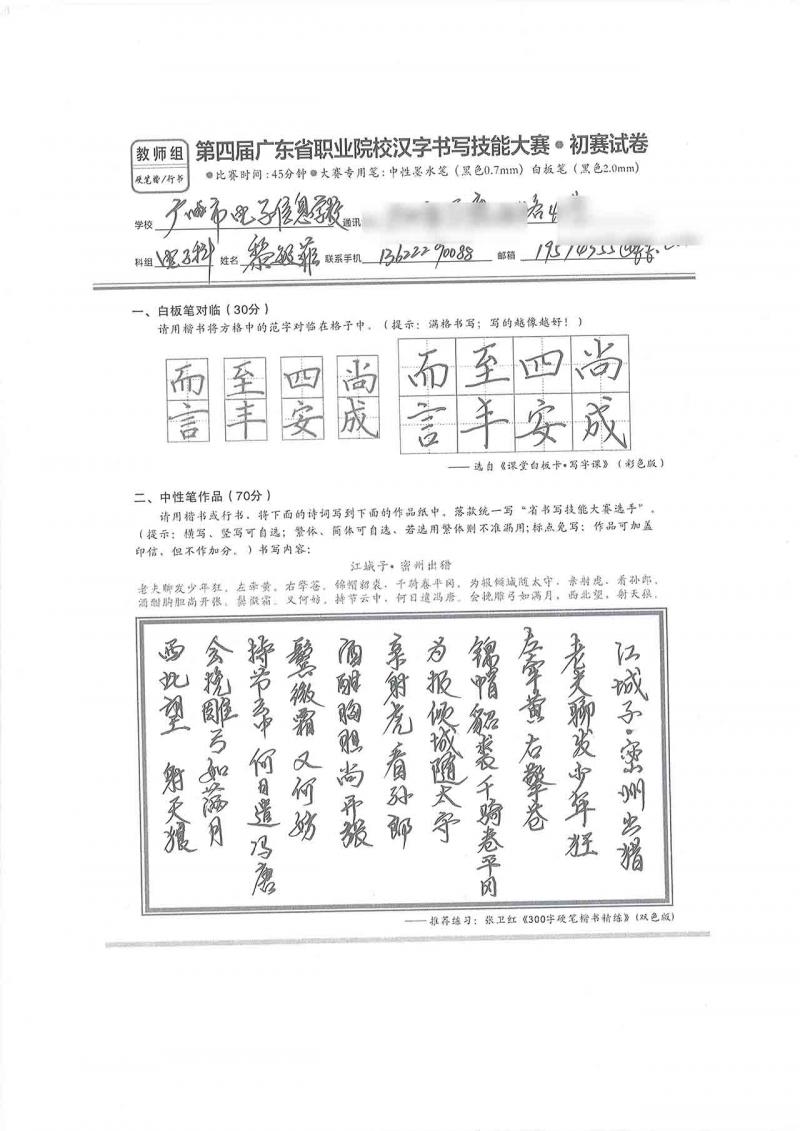 教师组
硬笔楷/行书
第四届广东省职业院校汉字书写技能大赛·初赛试卷
●比赛时间:45分钟●大赛专用笔:中性墨水笔(黑色0.7mm)白板笔(黑色2.0mm)
学校 广州市电子信息学校 通讯
科组 电子科 姓名 黎敏菲 联系手机 13622290088 邮箱
一、白板笔对临(30分)
请用楷书将方格中的范字对临在格子中。(提示:满格书写;写的越像越好!)
而 至 四 尚 而 至 四 尚
言 丰 安 成 言 丰 安 成
——选自《课堂白板卡·写字课》(彩色版)
二、中性笔作品(70分)
请用楷书或行书,将下面的诗词写到下面的作品纸中。落款统一写“省书写技能大赛选手”。
(提示:横写、竖写可自选;繁体、简体可自选、若选用繁体则不准漏用;标点免写;作品可加盖
印信,但不作加分。)书写内容:
江城子·密州出猎
老夫聊发少年狂,左牵黄,右擎苍,锦帽貂裘,千骑卷平冈。为报倾城随太守,亲射虎,看孙郎。
酒酣胸胆尚开张。鬓微霜,又何妨。持节云中,何日遣冯唐。会挽雕弓如满月,西北望,射天狼。
江城子·密州出猎
老夫聊发少年狂
左牵黄 右擎苍
锦帽貂裘 千骑卷平冈
为报倾城随太守
亲射虎 看孙郎
酒酣胸胆尚开张
鬓微霜 又何妨
持节云中 何日遣冯唐
会挽雕弓如满月
西北望 射天狼
——推荐练习:张卫红《300字硬笔楷书精练》(双色版)